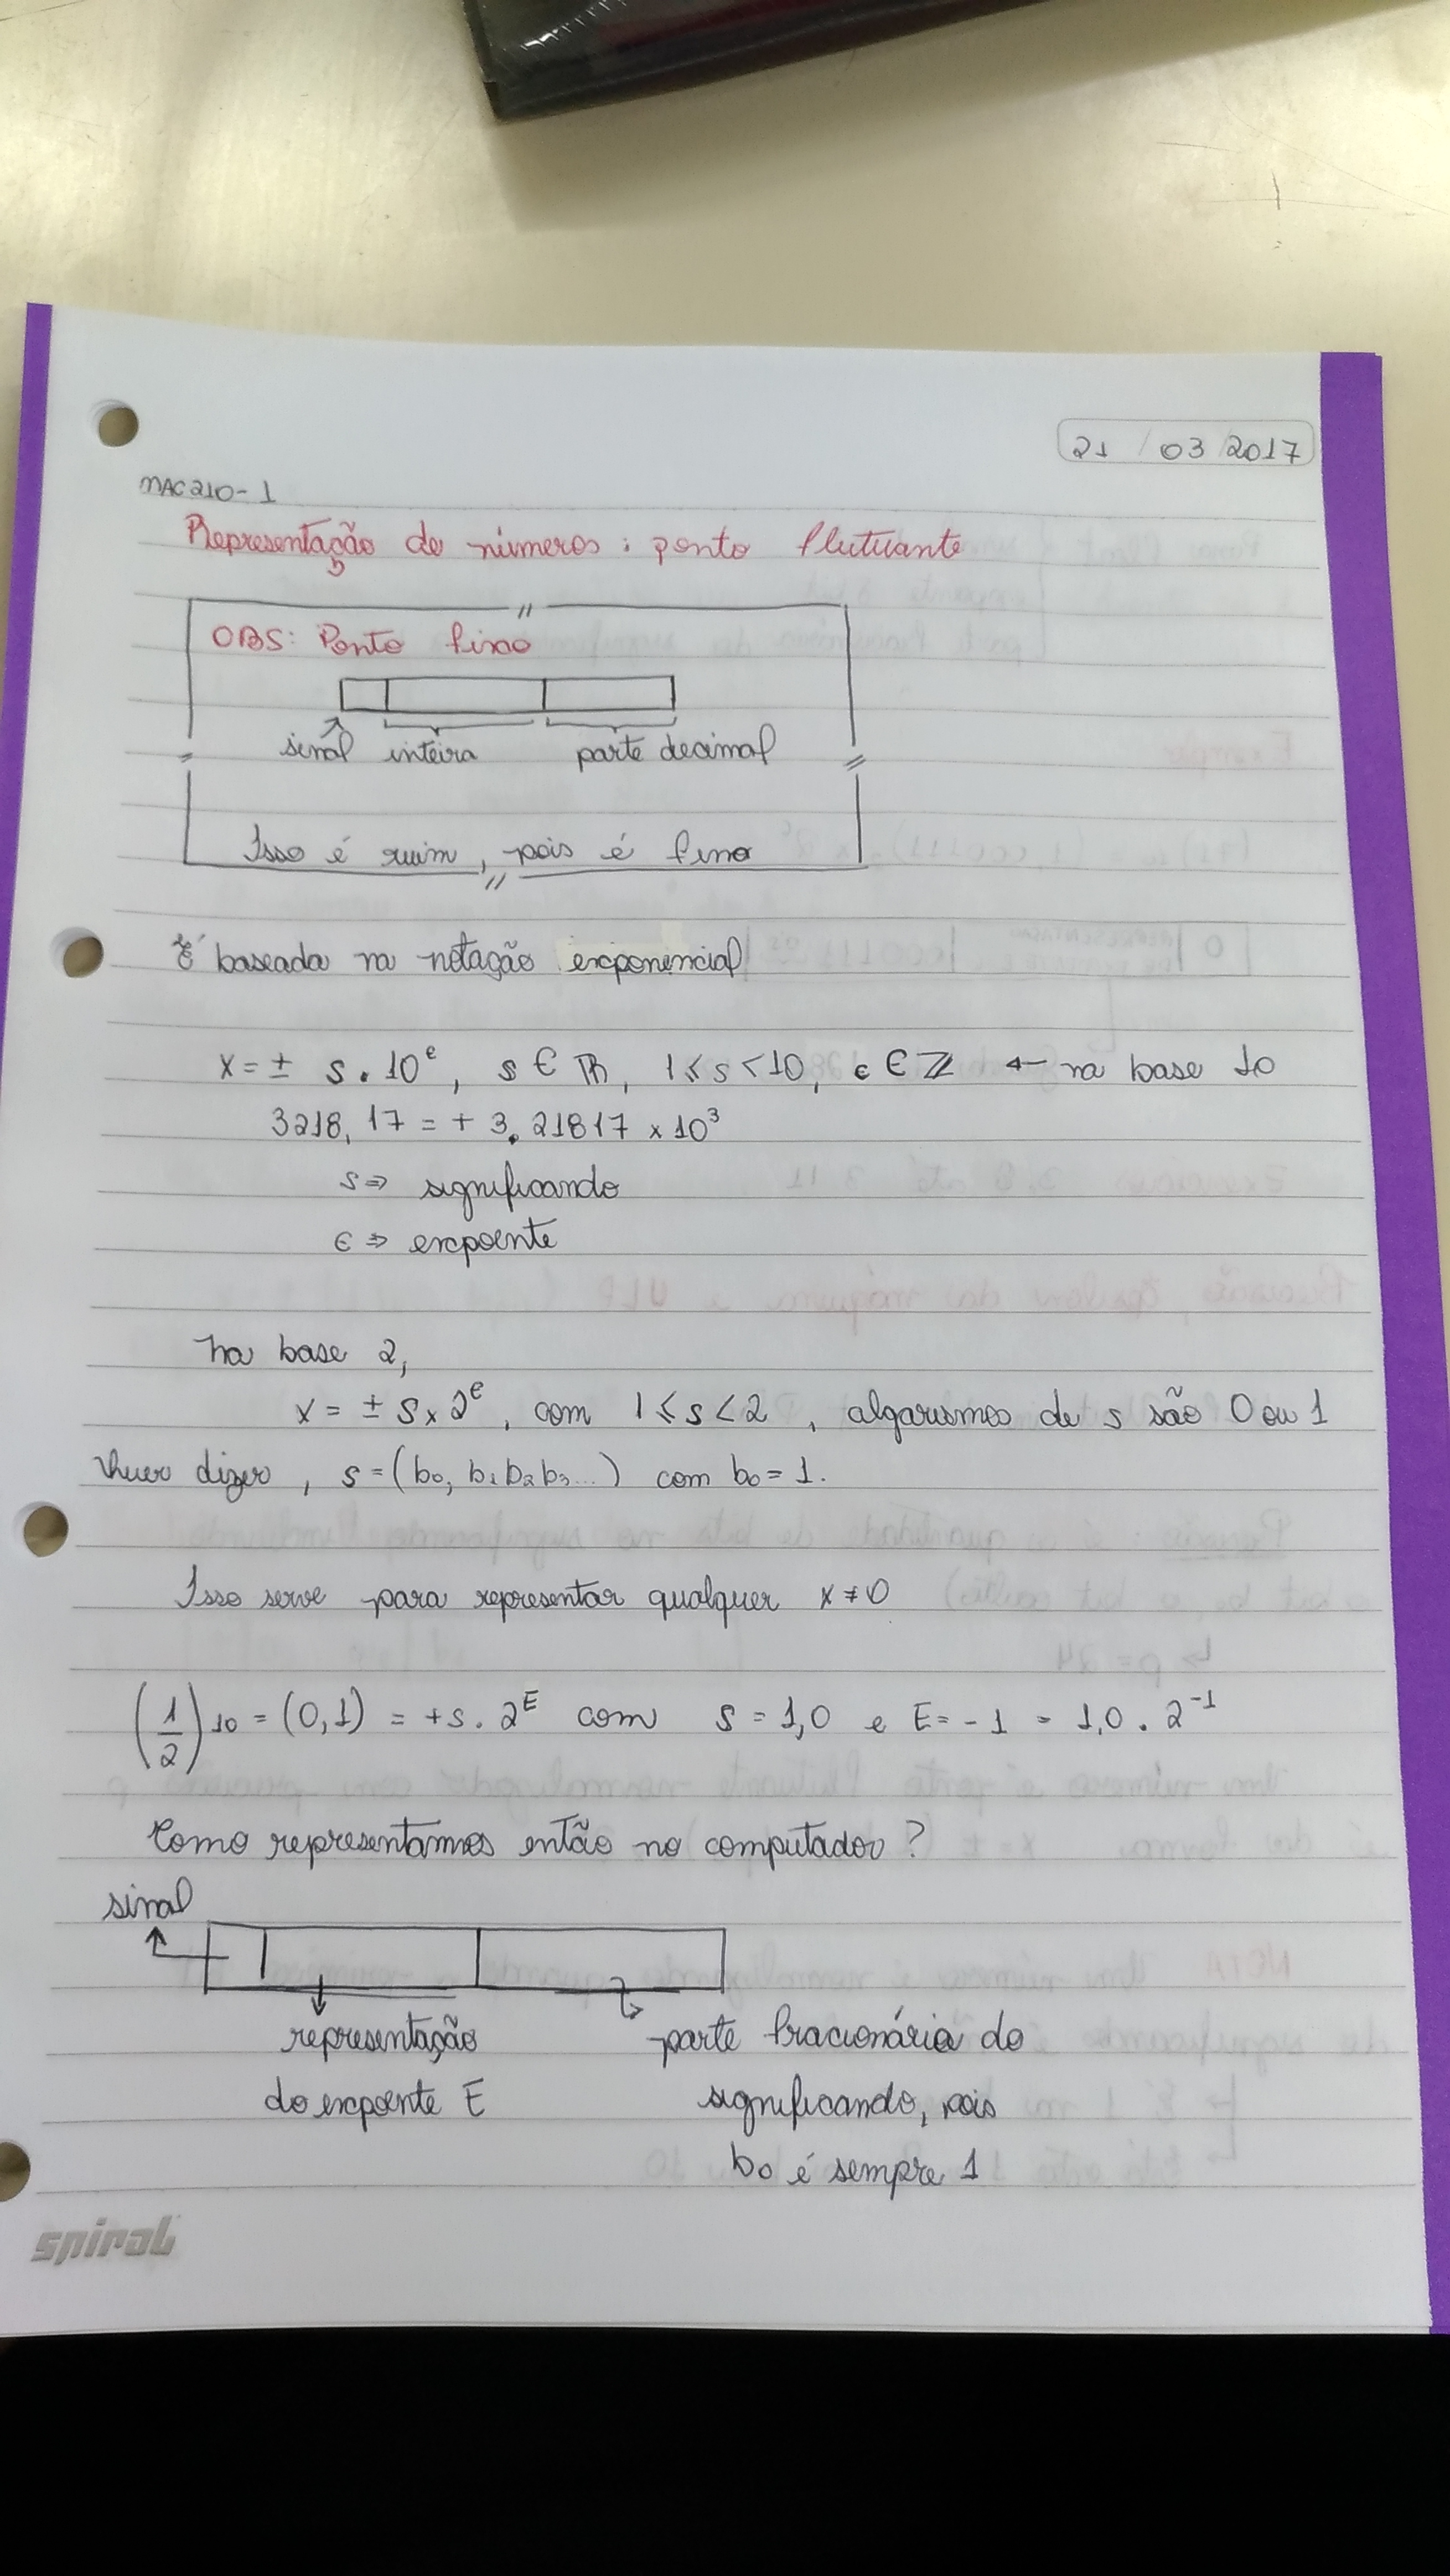 21 / 03 / 2017
MAC210 - 1
Representação de números: ponto flutuante
OBS: Ponto fixo
sinal inteira parte decimal
Isso é ruim, pois é fixo
É baseada na notação exponencial
x = ± s . 10^e, s ∈ ℝ, 1 ≤ s < 10, e ∈ ℤ ← na base 10
3218,17 = + 3,21817 × 10³
s ⇒ significando
e ⇒ expoente
Na base 2,
x = ± s × 2^e, com 1 ≤ s < 2, algarismos de s são 0 ou 1
Quer dizer, s = (b₀, b₁b₂b₃...) com b₀ = 1.
Isso serve para representar qualquer x ≠ 0
(1/2)₁₀ = (0,1) = +s . 2^E com s = 1,0 e E = -1 = 1,0 . 2^-1
Como representamos então no computador?
sinal
representação parte fracionária do
do expoente E significando, pois
b₀ é sempre 1
spiral